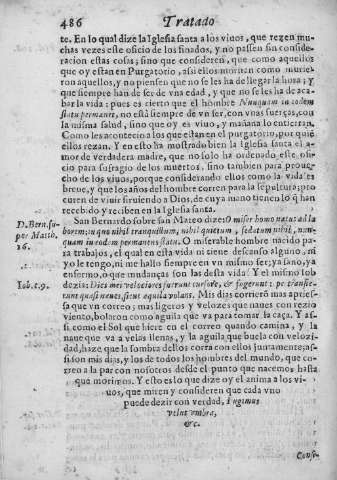 486 Tratado
te. En lo qual dize la Iglesia santa a los viuos, que rezen mu-
chas vezes este oficio de los finados, y no passen sin conside-
racion estas cosas; sino que consideren, que como aquellos
que oy estan en Purgatorio, assi ellos moriran como murie-
ron aquellos, y no piensen que no se les ha de llegar la hora; y
que siempre han de ser de vna edad, y que no se les ha de aca-
bar la vida: pues es cierto que el hombre Nunquam in eodem
statu permanet, no està siempre de vn ser, con vnas fuerças, con
la misma salud, sino que oy es viuo, y mañana lo entierran.
Como les acontecio a los que estan en el purgatorio, por quiē
ellos rezan. Y en esto ha mostrado bien la Iglesia santa el a-
mor de verdadera madre, que no solo ha ordenado este ofi-
cio para sufragio de los muertos, sino tambien para proue-
cho de los viuos, porque considerando ellos como la vida es
breue, y que los años del hombre corren para la sepultura; pro-
curen de viuir siruiendo a Dios, de cuya mano tienen lo q̄ han
recebido y reciben en la Iglesia santa.
San Bernardo sobre san Mateo dize: O miser homo natus ad la
D. Bern. su-
per Matth.
16.
borem; in quo nihil tranquillum, nihil quietum, sedatum nihil, nun-
quam in eodem permanens statu. O miserable hombre nacido pa-
ra trabajos, el qual en esta vida ni tiene descanso alguno, ni
yo le tengo, ni me hallo siempre en vn mismo ser; ya sano, ya
enfermo, ò que mudanças son las desta vida! Y el mismo Iob
Iob. c. 9.
dezia: Dies mei velociores fuerunt cursore, & fugerunt: pertransie-
runt quasi naues, sicut aquila volans. Mis dias corrierō mas aprie-
sa, que vn correo; mas ligeros y velozes que naues con rezio
viento, bolaron como aguila que va para tomar la caça. Y as-
si como el Sol que hiere en el correo quando camina, y la
naue que va a velas llenas, y la aguila que buela con veloci-
dad, haze que la sombra dellos corra con ellos juntamente; as-
si son mis dias, y los de todos los hombres del mundo, que cor-
ren a la par con nosotros desde el punto que nacemos hasta
que morimos. Y esto es lo que dize oy el anima a los vi-
uos, que miren y consideren que cada vno
puede dezir con verdad, Fugimus
velut vmbra,
&c.
Conse-